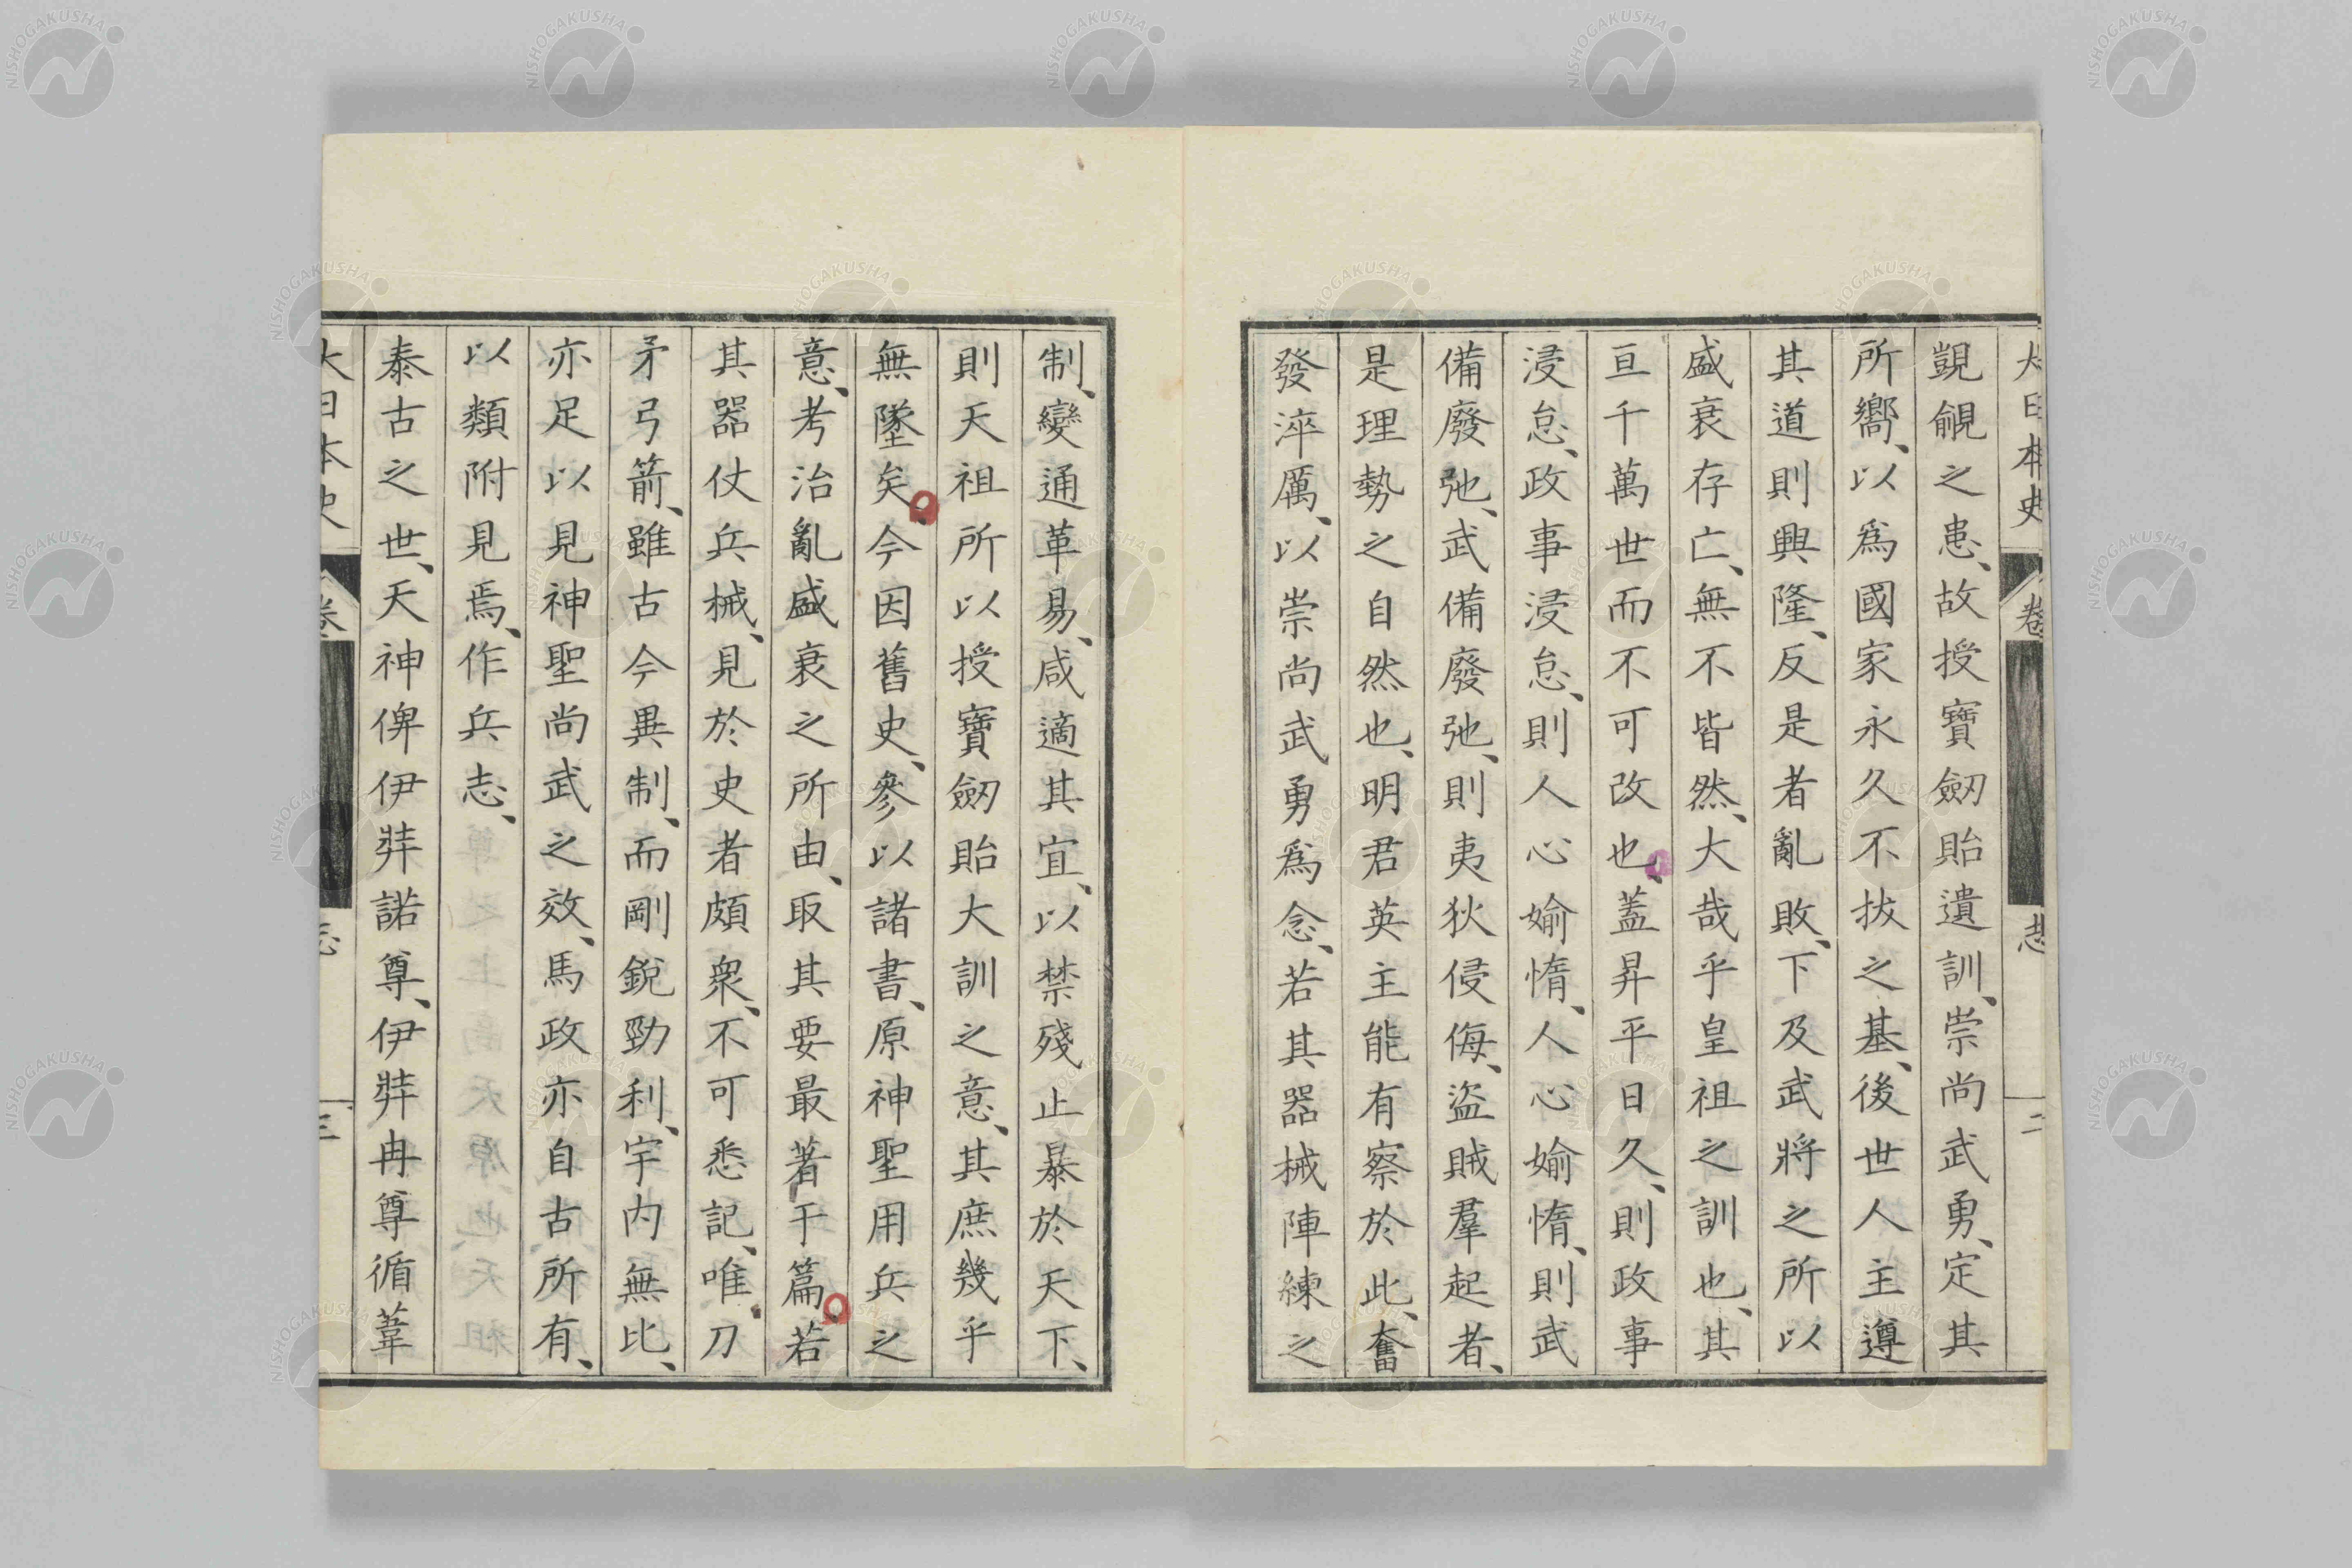 大日本史 卷 志 二
覬覦之患、故授寶劒貽遺訓、崇尚武勇、定其
所嚮、以爲國家永久不拔之基、後世人主遵
其道則興隆、反是者亂敗、下及武將之所以
盛衰存亡、無不皆然、大哉乎皇祖之訓也、其
亘千萬世而不可改也、蓋昇平日久、則政事
浸怠、政事浸怠、則人心媮惰、人心媮惰、則武
備廢弛、武備廢弛、則夷狄侵侮、盜賊羣起者、
是理勢之自然也、明君英主能有察於此、奮
發淬厲、以崇尚武勇爲念、若其器械陣練之
制、變通革易、咸適其宜、以禁殘止暴於天下、
則天祖所以授寶劒貽大訓之意、其庶幾乎
無墜矣、今因舊史、參以諸書、原神聖用兵之
意、考治亂盛衰之所由、取其要最著于篇、若
其器仗兵械、見於史者頗衆、不可悉記、唯刀
矛弓箭、雖古今異制、而剛銳勁利、宇内無比、
亦足以見神聖尚武之效、馬政亦自古所有、
以類附見焉、作兵志、
泰古之世、天神俾伊弉諾尊、伊弉冉尊循葦
大日本史 卷 志 三
NISHOGAKUSHA